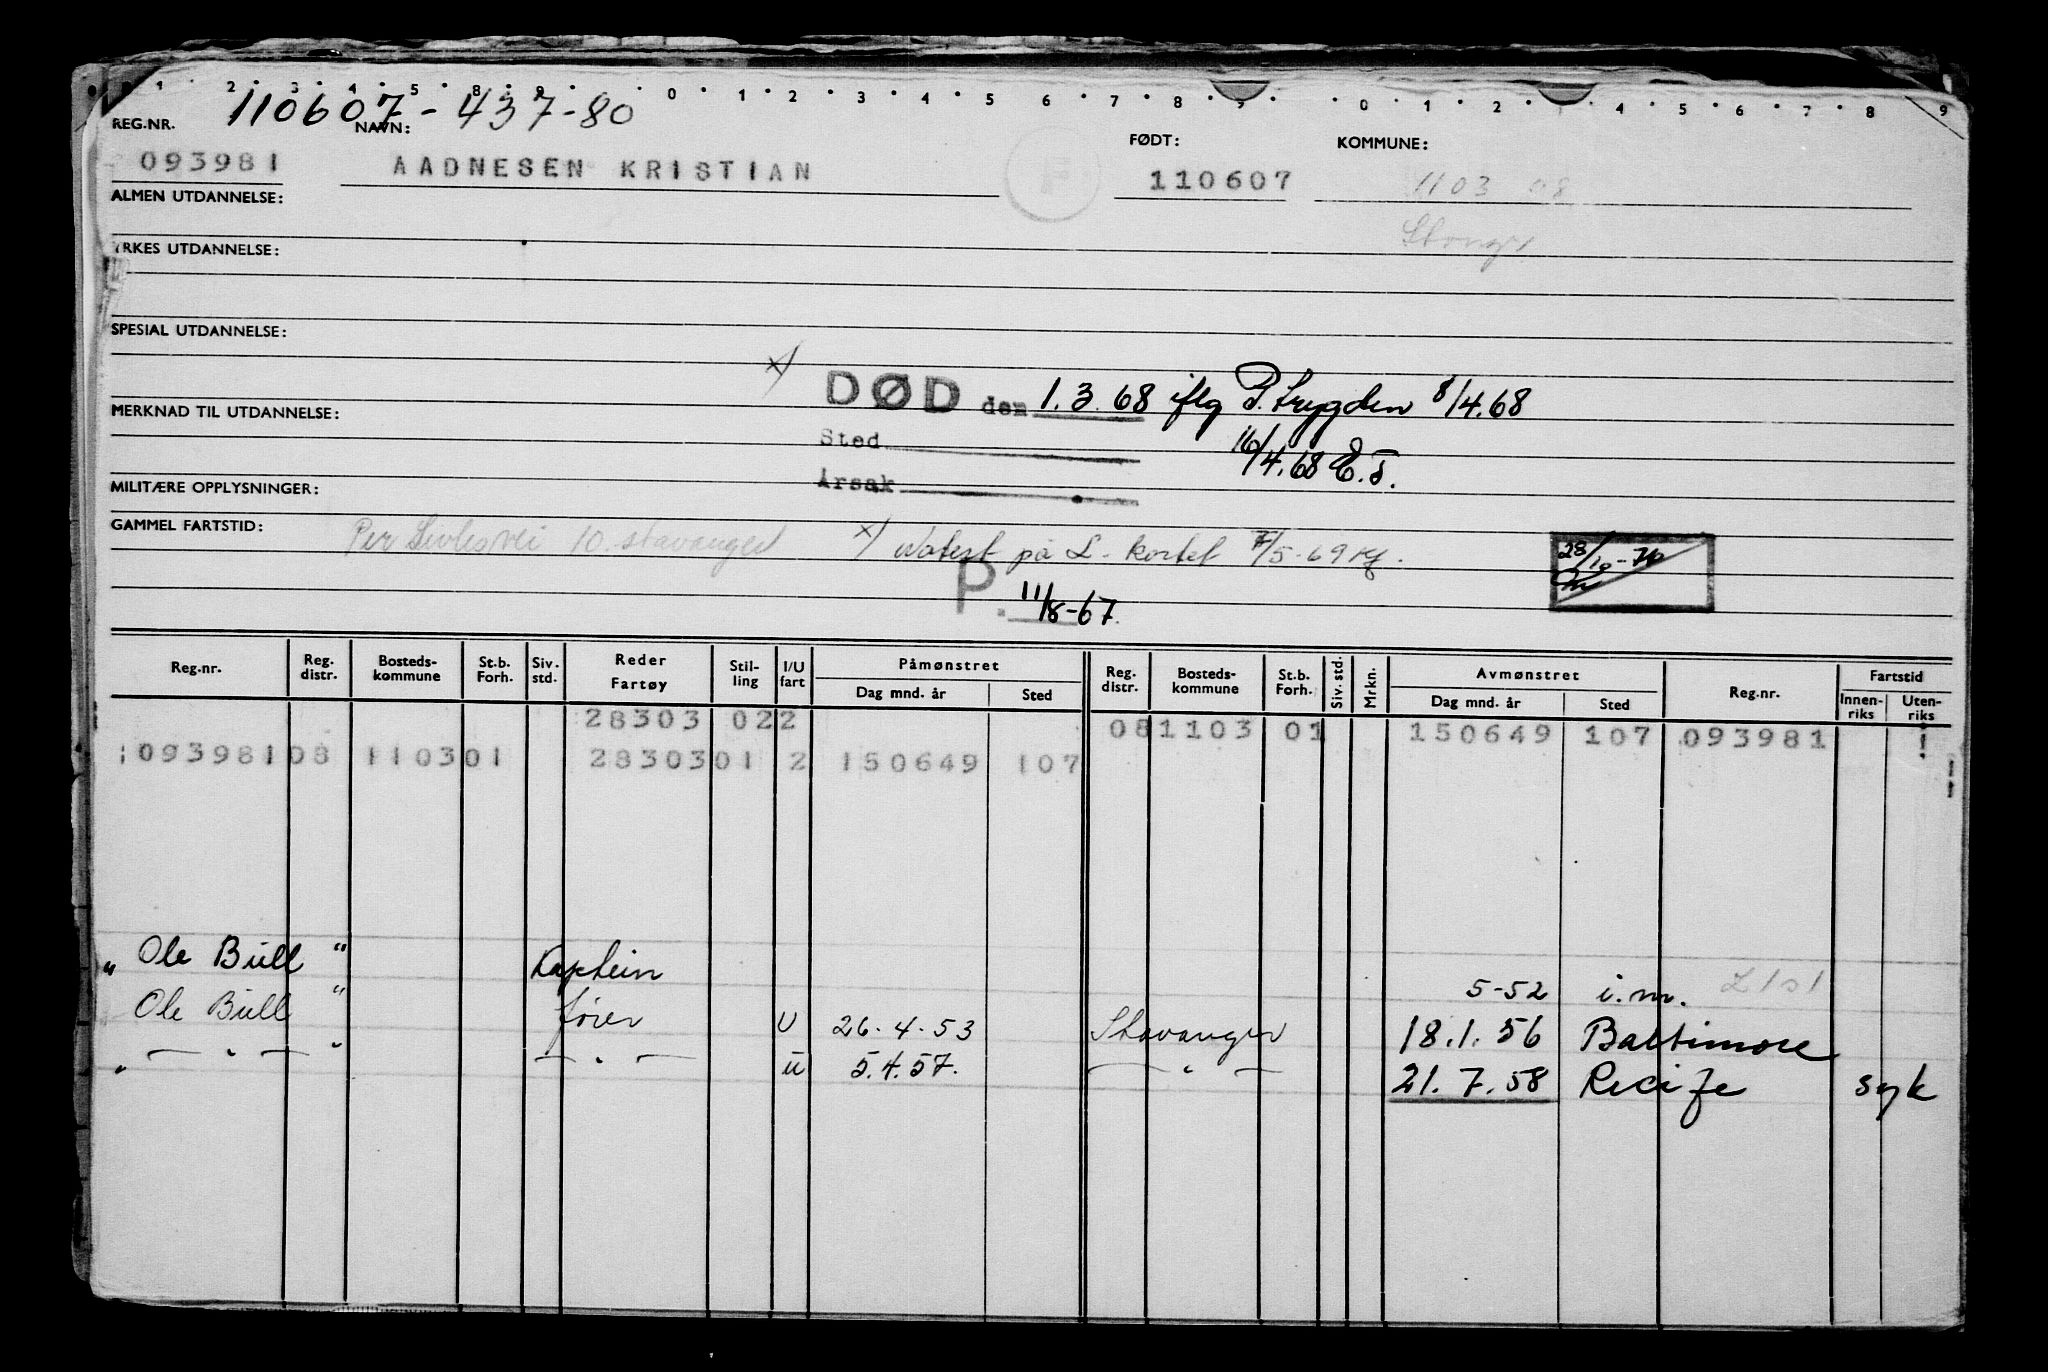 1 2 3 4 5 8 9 0 1 2 3 4 5 6 7 8 9 0 1 2 4 5 6 7 8 9
110607-437-80
REG.NR. NAVN: FØDT: KOMMUNE:
093981 AADNESEN KRISTIAN F 110607 1103 08
ALMEN UTDANNELSE:
YRKES UTDANNELSE:
SPESIAL UTDANNELSE:
x/ DØD den 1.3.68 iflg P.trygden 8/4.68
MERKNAD TIL UTDANNELSE:
Sted 16/4.68 E.T.
Årsak
MILITÆRE OPPLYSNINGER:
GAMMEL FARTSTID: Per 10. Stavanger x/ Notert på L-kortet 7/5-69 28/10-70
P. 11/8-67.
Reg.nr. Reg. distr. Bosteds-kommune St.b. Forh. Siv. std. Reder Fartøy Stil-ling I/U fart Påmønstret Dag mnd. år Sted Reg. distr. Bosteds-kommune St.b. Forh. Siv. std. Mrkn. Avmønstret Dag mnd. år Sted Reg.nr. Fartstid Innen-riks Uten-riks
28303 022 081103 01 150649 107 093981
09398108 110301 2830301 2 150649 107
" Ole Bull " Kaptein 5-52 i.m.
Ole Bull " fører U 26-4-53 Stavanger 18.1.56 Baltimore
" — " — " — " — U 5.4.57. — " — 21.7.58 Recife syk